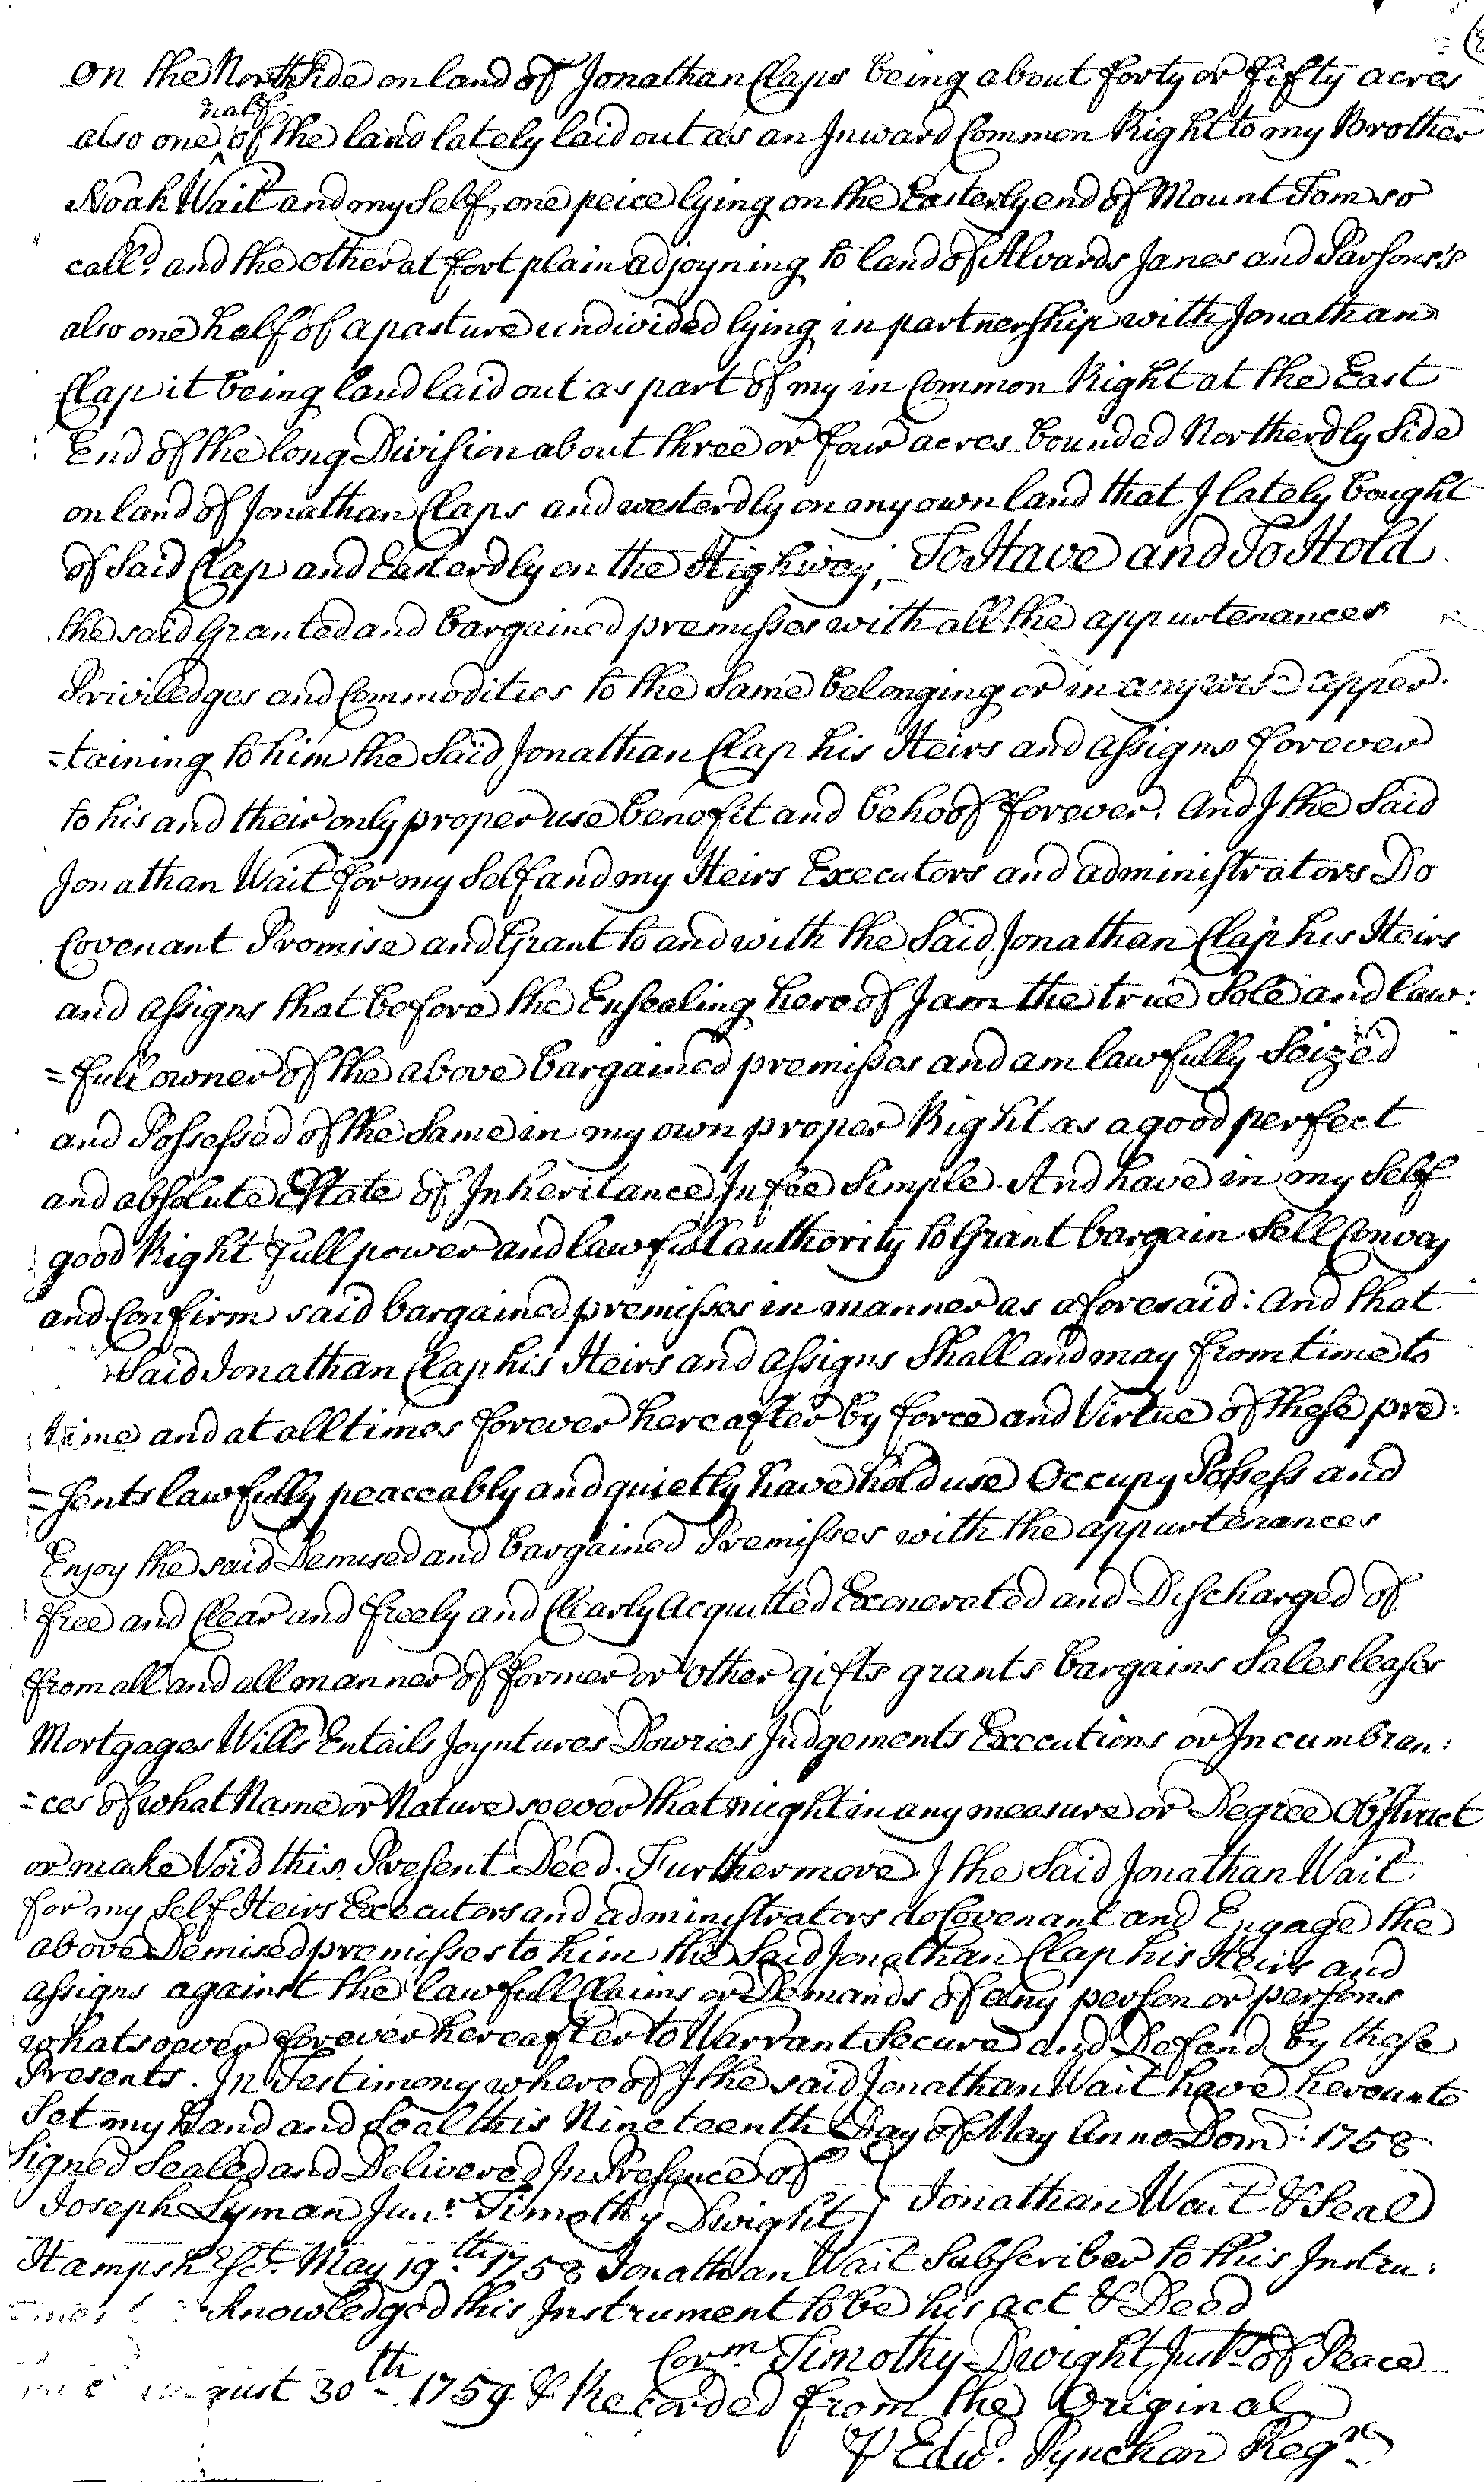 on the North Side on land of Jonathan Claps being about forty or fifty acres
half
also one ^ of the land lately laid out as an Inward Common Right to my Brother
Noah Wait and my Self, one peice lying on the Easterly end of Mount Tom so
calld. and the other at fort plain adjoyning to land of Alvards Janes and Parsons's
also one half of a pasture undivided lying in partnership with Jonathan
Clap it being land laid out as part of my in Common Right at the East
End of the long Division about three or four acres bounded Northerdly Side
on land of Jonathan Claps and westerdly on my own land that I lately bought
of Said Clap and Easterdly on the Highway; To Have and To Hold
the said Granted and bargained premisses with all the appurtenances
Priviledges and Commodities to the Same belonging or in any wise apper-
=taining to him the Said Jonathan Clap his Heirs and assigns forever
to his and their only proper use benefit and behoof forever. And I the Said
Jonathan Wait for my Self and my Heirs Executors and administrators Do
Covenant Promise and Grant to and with the Said Jonathan Clap his Heirs
and assigns that before the Ensealing hereof I am the true Sole and law:
=full owner of the above bargained premisses and am lawfully Seized
and Possessed of the Same in my own proper Right as a good perfect
and absolute Estate of Inheritance In fee Simple. And have in my Self
good Right full power and lawfull authority to Grant bargain Sell Convey
and Confirm said bargained premisses in manner as aforesaid: And that
Said Jonathan Clap his Heirs and assigns Shall and may from time to
time and at all times forever hereafter by force and Virtue of these pre:
=sents lawfully peaceably and quietly have hold use Occupy Possess and
Enjoy the said Demised and bargained Premisses with the appurtenances
free and Clear and freely and Clearly Acquitted Exonerated and Discharged of
from all and all manner of former or other gifts grants bargains Sales leases
Mortgages Wills Entails Joyntures Dowries Judgements Executions or Incumbran:
=ces of what Name or Nature soever that might in any measure or Degree Obstruct
or make Void this Present Deed. Furthermore I the Said Jonathan Wait
for my Self Heirs Executors and administrators do Covenant and Engage the
above Demised premisses to him the Said Jonathan Clap his Heirs and
assigns against the lawfull Claims or Demands of any person or persons
whatsoever forever hereafter to Warrant Secure and Defend by these
Presents. In Testimony whereof I the said Jonathan Wait have hereunto
Set my Hand and Seal this Nineteenth Day of May Anno Dom: 1758
Signed Sealed and Delivered In Presence of
Joseph Lyman Junr. Timothy Dwight } Jonathan Wait & Seal
Hampsh. Sct. May 19th. 1758 Jonathan Wait Subscriber to this Instru:
knowledged this Instrument to be his act & Deed
Corm Timothy Dwight Justs. of Peace
gust 30th. 1759 & Recorded from the Original
Edwd. Pynchon Regr